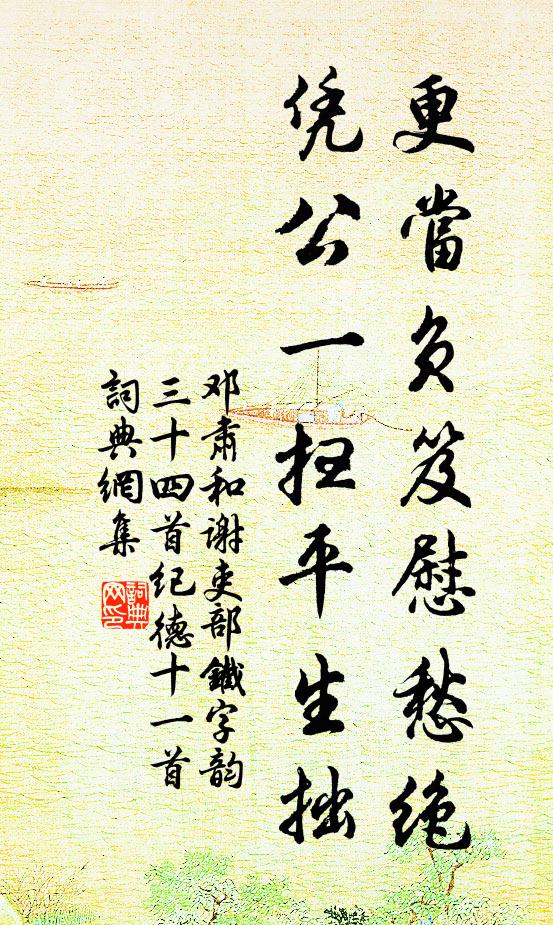 更當负笈慰愁绝
凭公一扫平生拙
邓肃和谢吏部鐵字韵
三十四首纪德十一首
詞典網集
詞典網印